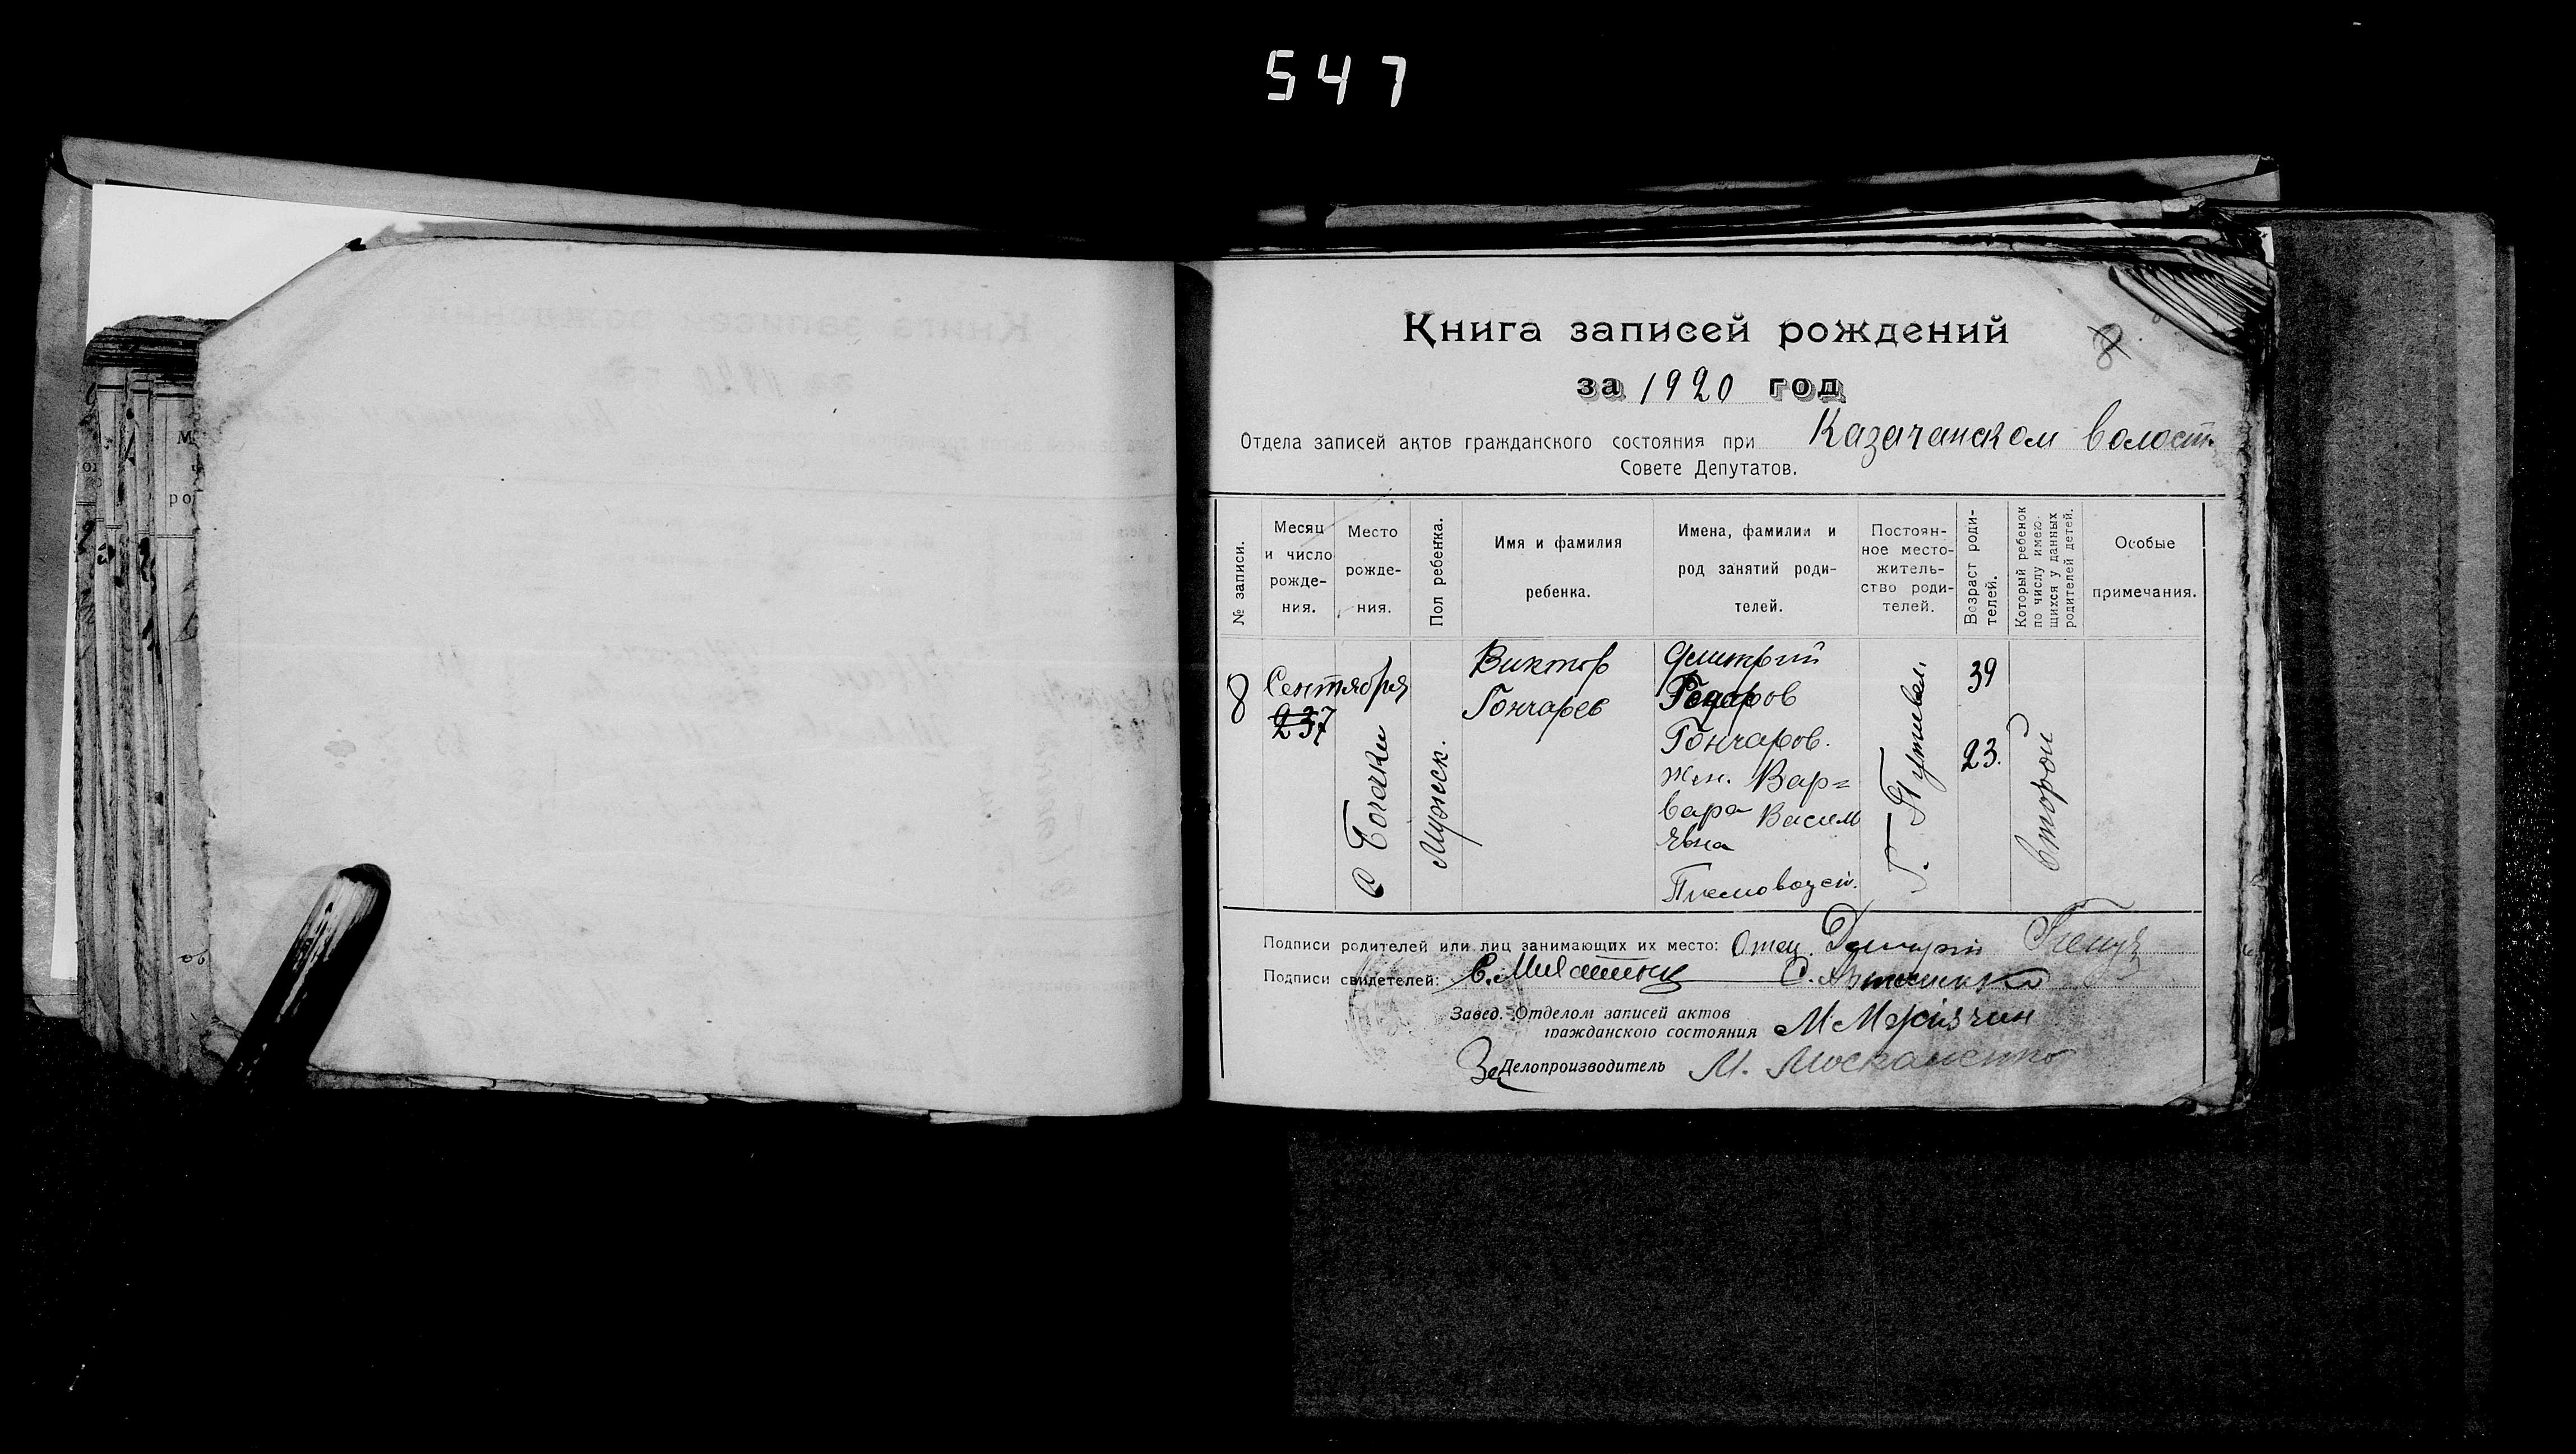 547
Книга записей рождений
8
за 1920 год
Отдела записей актов гражданского состояния при Казачанском волост.
Совете Депутатов.
№ записи.
Месяц и число рожде- ния.
Место рожде- ния.
Пол ребенка.
Имя и фамилия ребенка.
Имена, фамилии и род занятий роди- телей.
Постоян- ное место- житель- ство роди- телей.
Возраст роди- телей.
Который ребенок по числу имею- щихся у данных родителей детей.
Особые примечания.
8
Сентября
с Бочечки
Мужск.
Виктор
Гончарев
Дмитрий
Гончаров.
жен. Вар=
вара Васил
ьвна
Г. Путивл.
39
23.
второй
Подписи родителей или лиц занимающих их место: Отец Дмитрий
Подписи свидетелей:
Завед. Отделом записей актов
гражданского состояния
За Делопроизводитель М. Москаленко